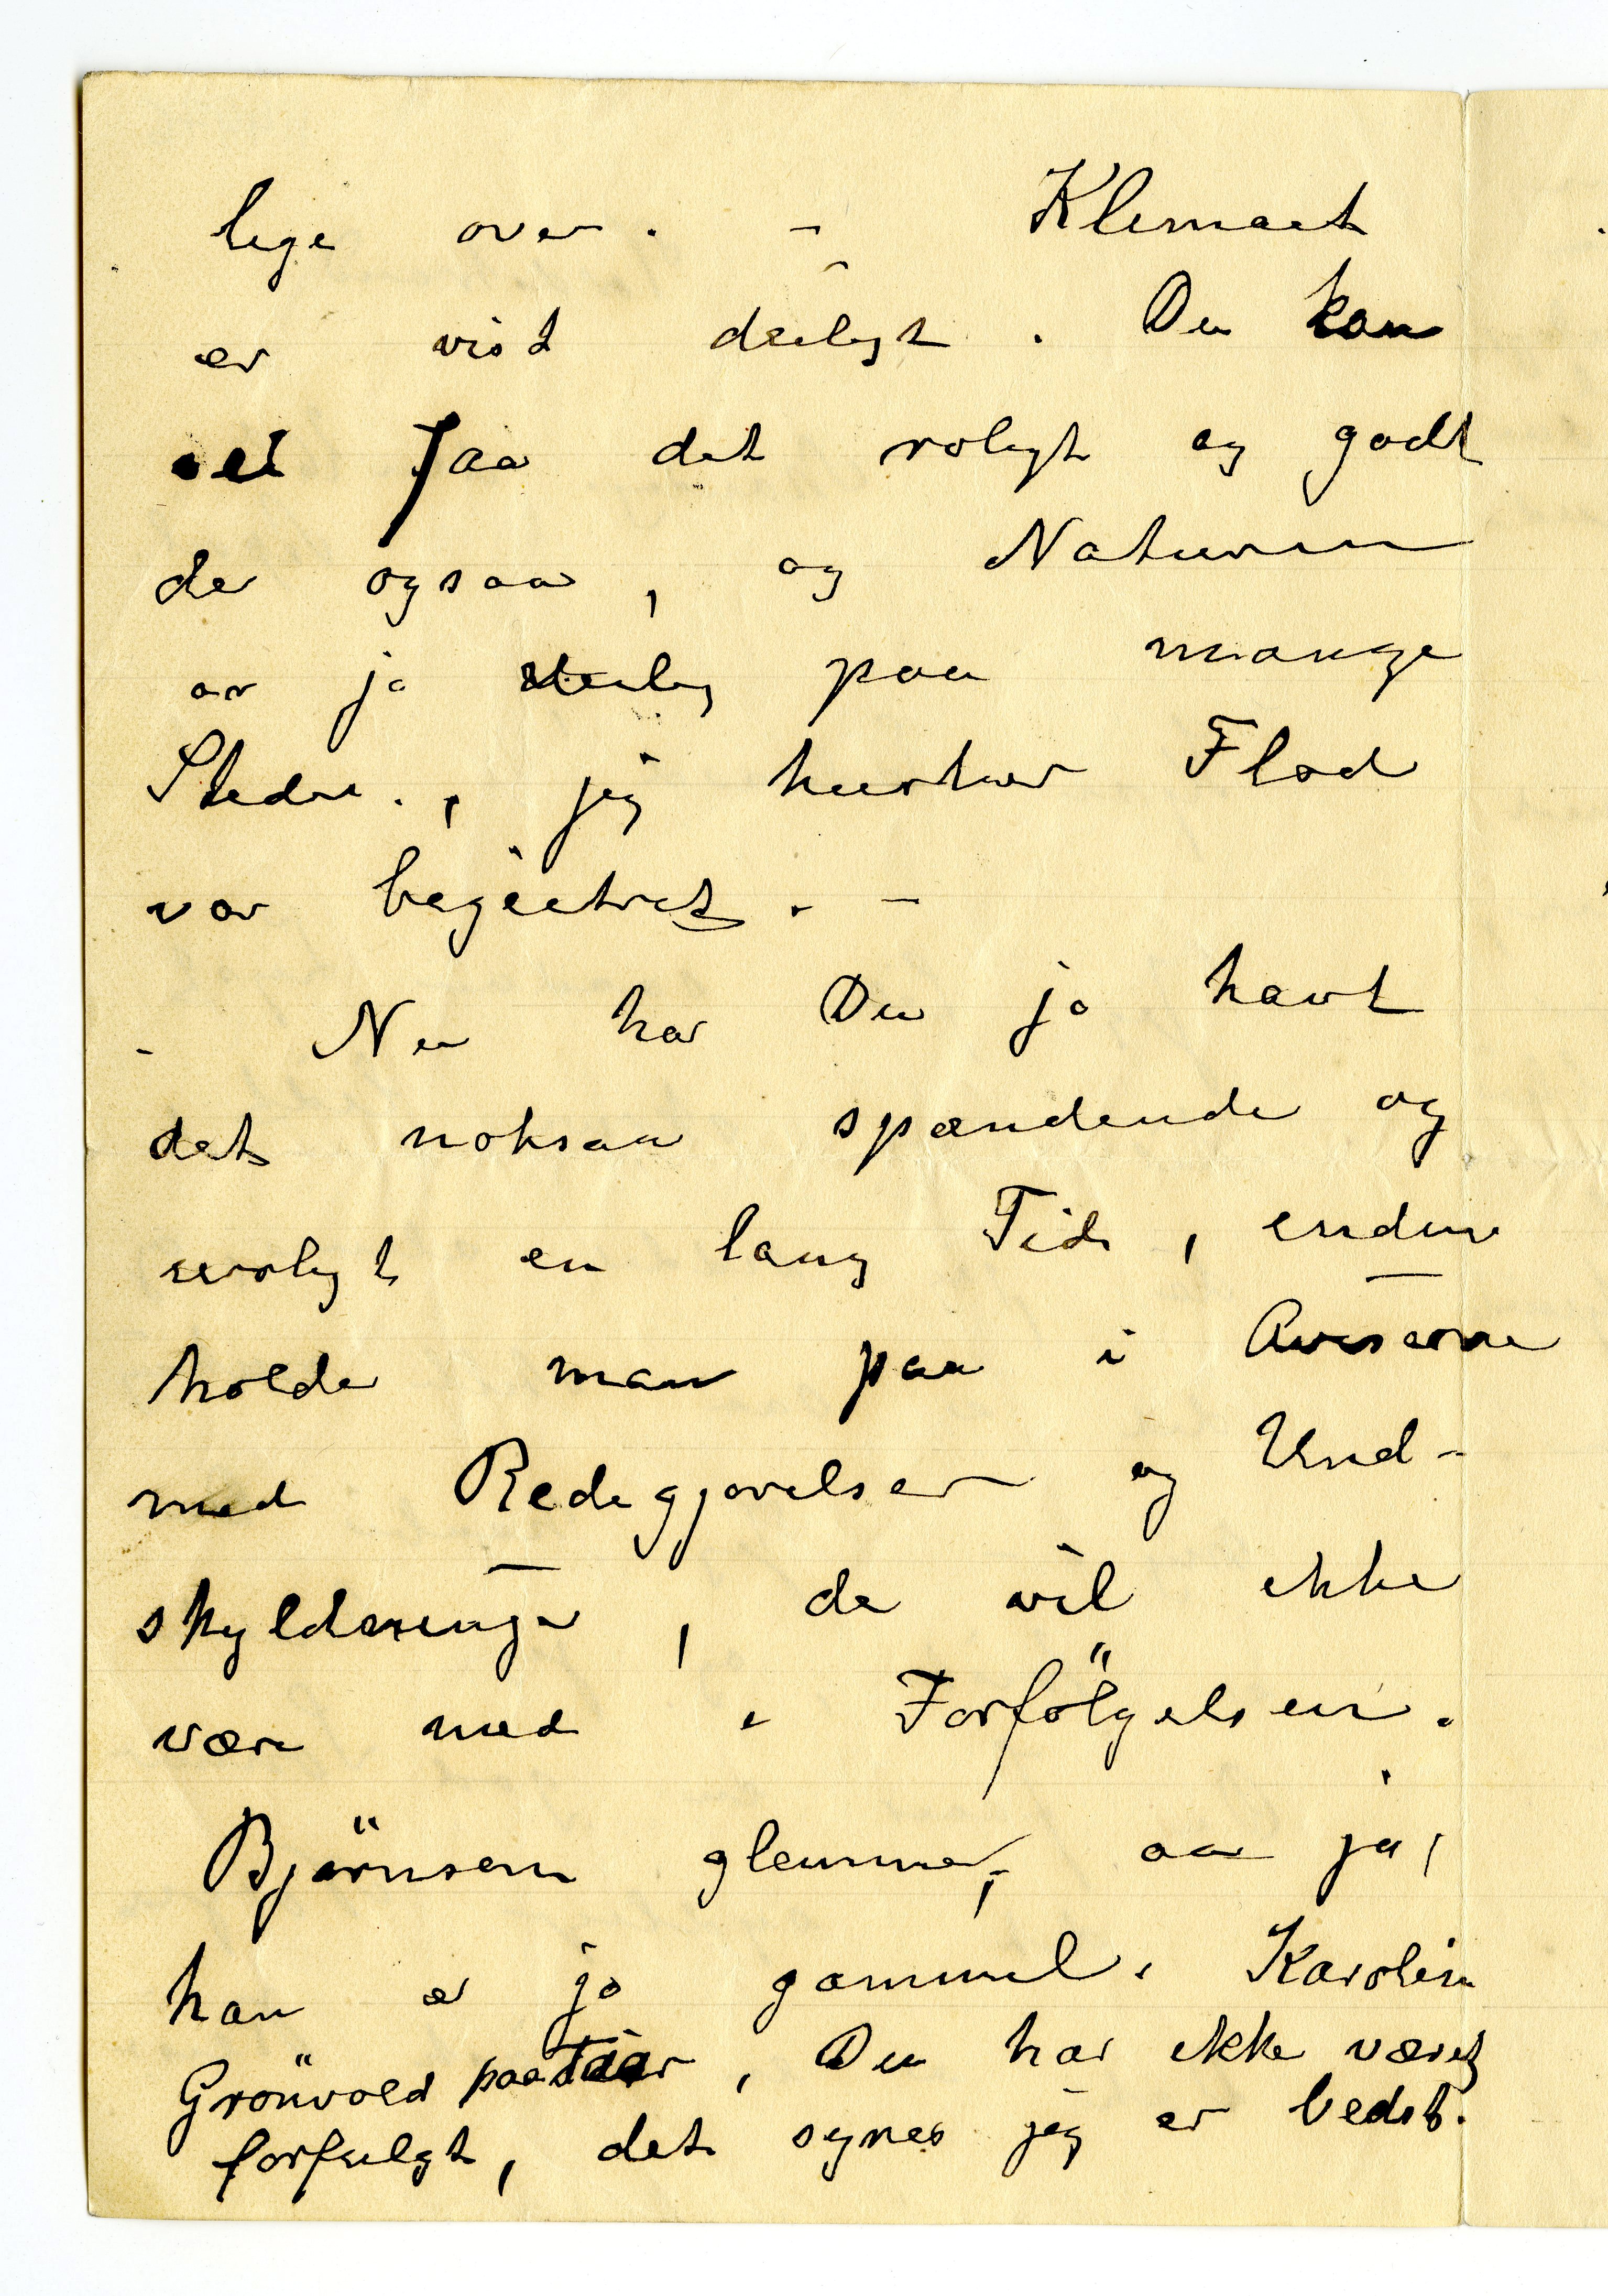 lige over. – Klimaet
er vist deiligt. Du kan
vel faa det roligt og godt
der ogsaa, og Naturen
er jo deilig paa mange
Steder., jeg husker Flod
var begeistret. –
– Nu har Du jo havt
det noksaa spændende og
uroligt en lang Tid, endnu
holder man paa i Aviserne
med Redegjørelser og Und-
skyldninger, de vil ikke
være med i Forfölgelsen.
Björnson glemmer, aa ja,
han er jo gammel. Karoline
Grönvold paastaar, Du har ikke været
forfulgt, det synes jeg er bedst.